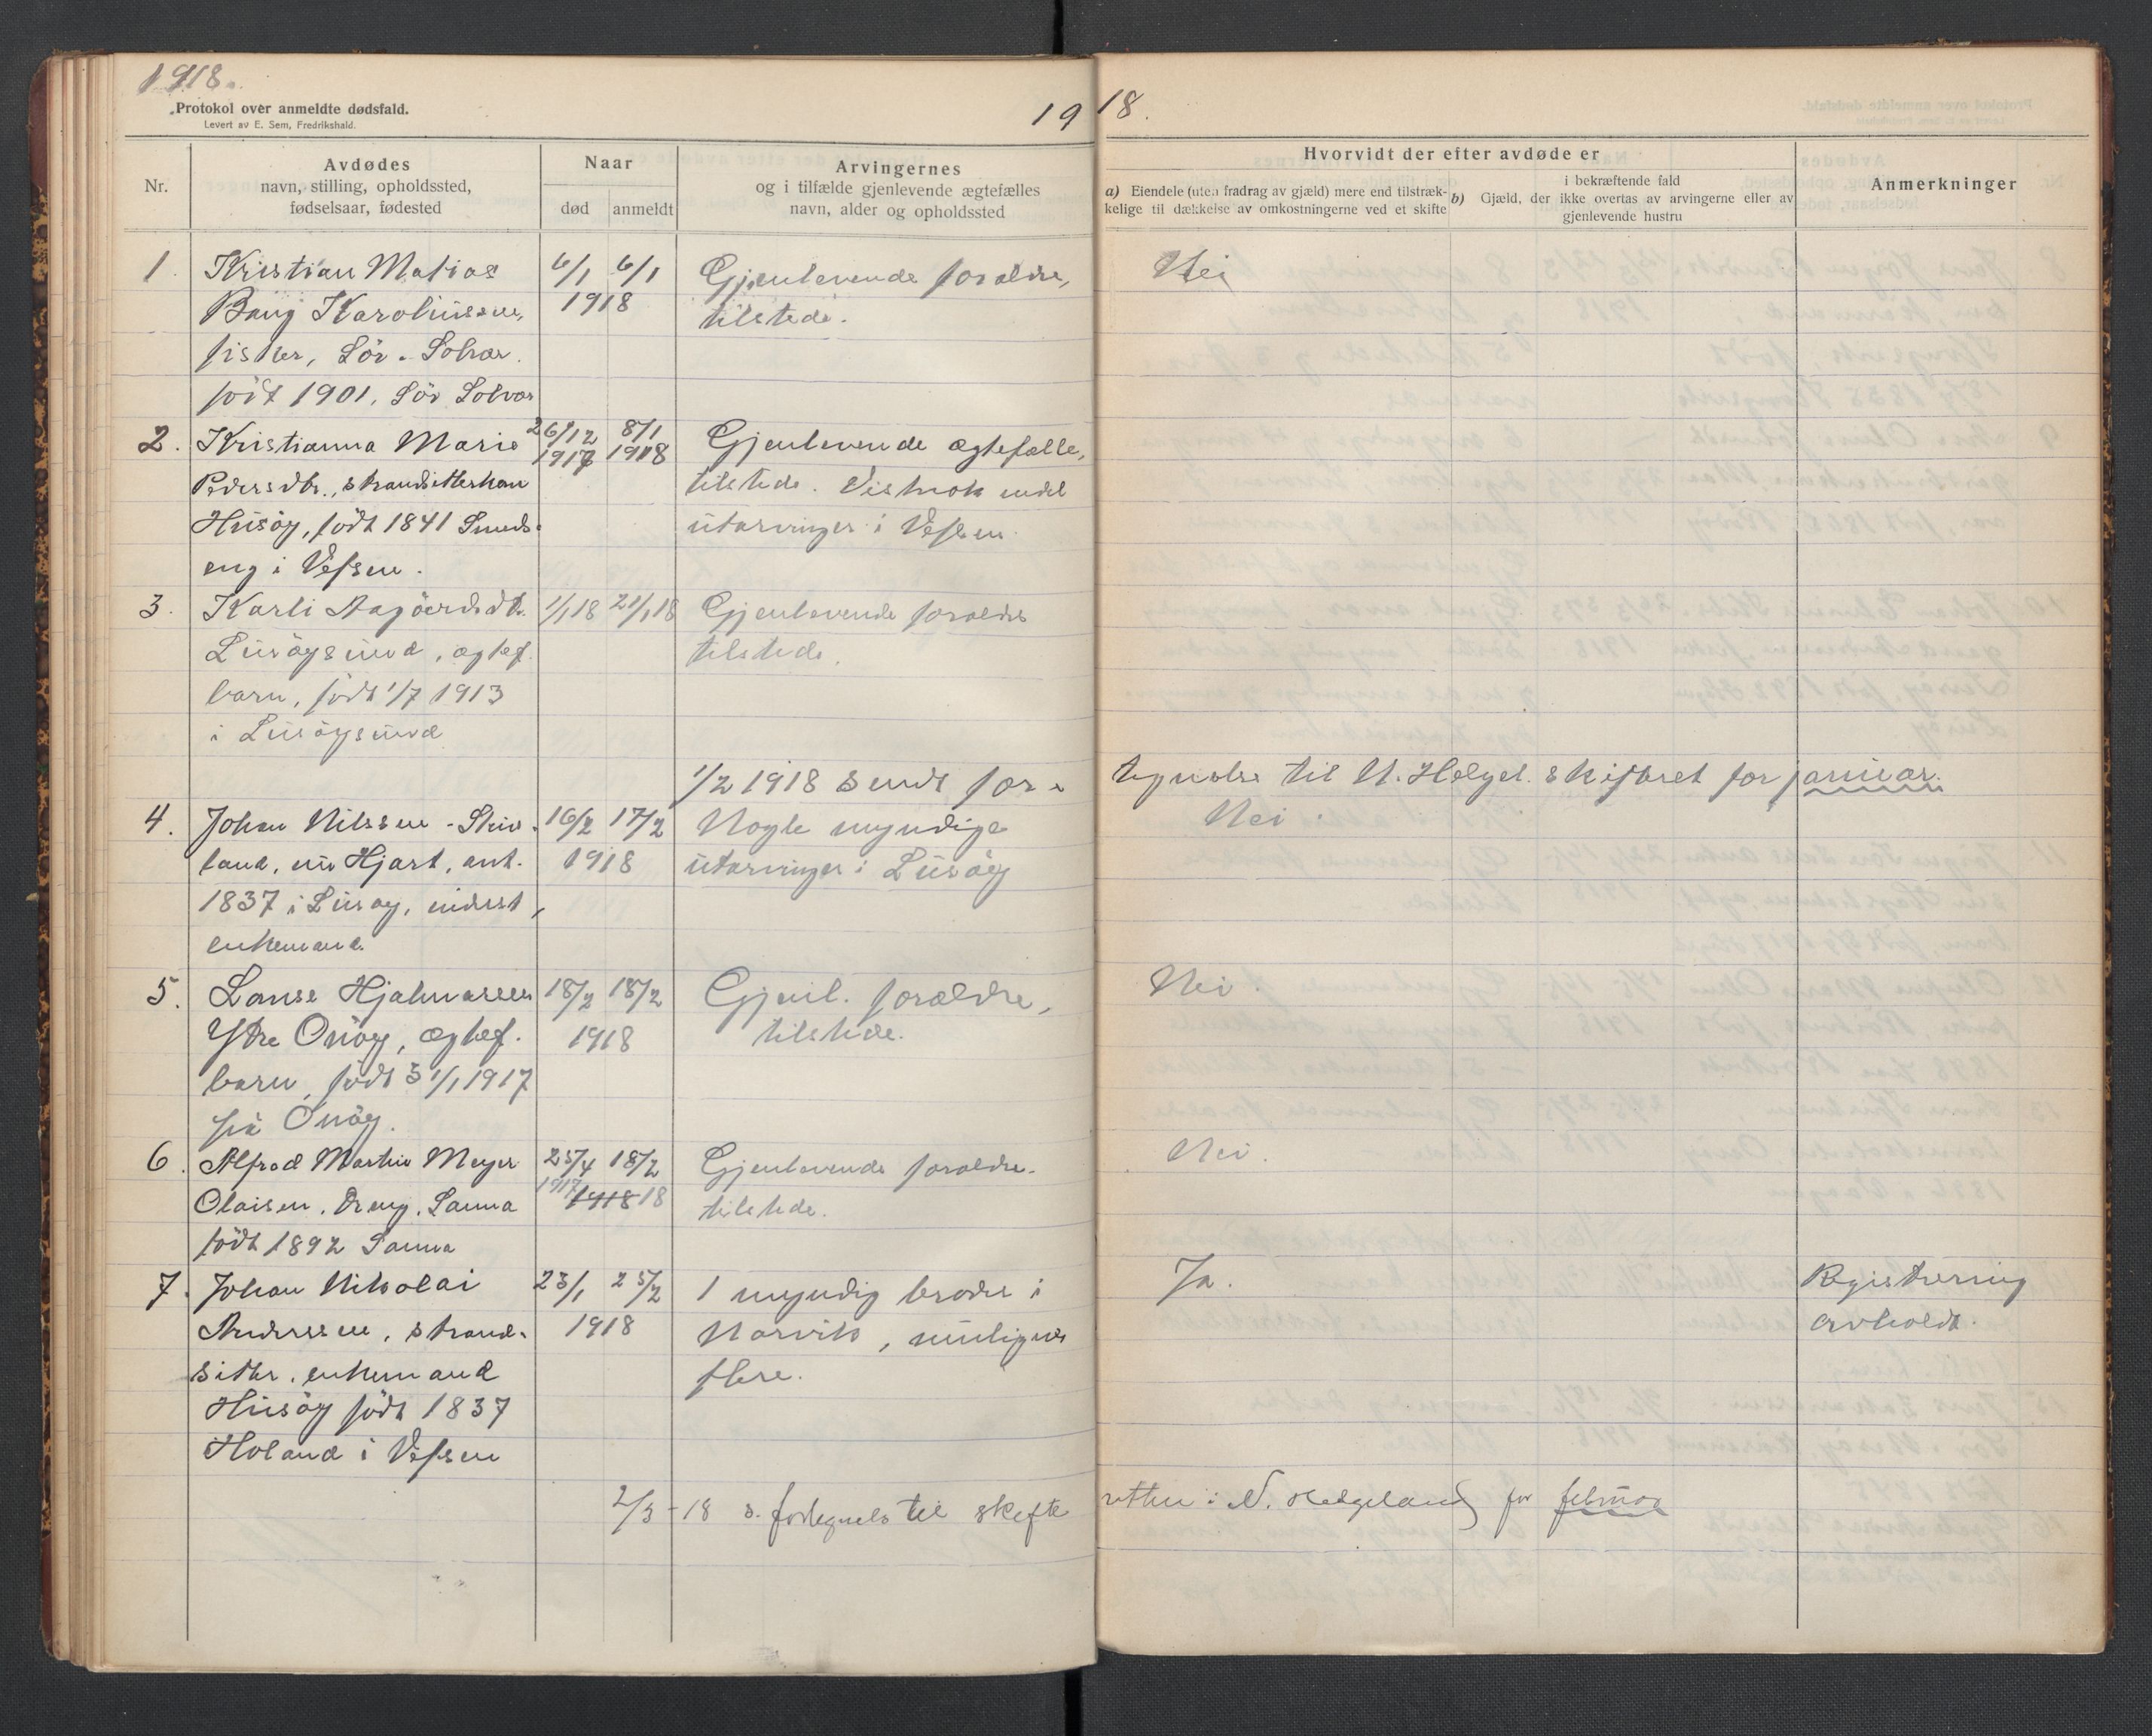 1918.
Protokol over anmeldte dødsfald.
Levert av E. Sem, Fredrikshald.
1918.
Nr.
Avdødes
navn, stilling, opholdssted,
fødselsaar, fødested
Naar
død
anmeldt
Arvingernes
og i tilfælde gjenlevende ægtefælles
navn, alder og opholdssted
Hvorvidt der efter avdøde er
a) Eiendele (uten fradrag av gjæld) mere end tilstræk-
kelige til dækkelse av omkostningerne ved et skifte
b) i bekræftende fald
Gjæld, der ikke overtas av arvingerne eller av
gjenlevende hustru
Anmerkninger
1. Kristian Matias 6/1 6/1 Gjenlevende forældre, Nei
Bang Karoliussen, 1918 tilstede.
fisker, Sör-Solvær.
födt 1901, Sör Solvær
2. Kristianna Marie 26/12 8/1 Gjenlevende ægtefælle,
1917 1918
Pedersdtr., strandsitterkon tilstede. Vistnok endel
Husöy, födt 1841 Smeds- utarvinger i Vefsen.
eng i Vefsen.
3. Karli 1/1 18 21/1 18 Gjenlevende forældre
Lusöysund, ægtef. tilstede.
barn, födt 1/7 1913
i Lusöysund
1/2 1918 sendt for-tegnelse til N. Helgel. skifteret for januar.
4. Johan Nilssen 16/2 17/2 Nogle myndige Nei.
land, 1918 utarvinger i Lusöy
1837 i Lusöy, inderst,
enkemand.
5. Hjalmarsen 18/2 18/2 Gjenl. forældre, Nei.
Ytre Onöy, ægtef. 1918 tilstede.
barn, födt 31/1 1917
på Onöy.
6. Alfred Martin Meyer 25/4 18/2 Gjenlevende forældre. Nei.
Olaisen, Dreng, Sanna 1917 1918 18 tilstede.
födt 1892 Sanna
7. Johan Nikolai 23/1 25/2 1 myndig broder i Ja. Registrering
Anderssen, strand- 1918 Narvik, muligens avholdt.
sitter, enkemand flere.
Husöy födt 1837
Holand i Vefsen
2/3-18 s. fortegnels til skifteretten i N. Helgeland for februar